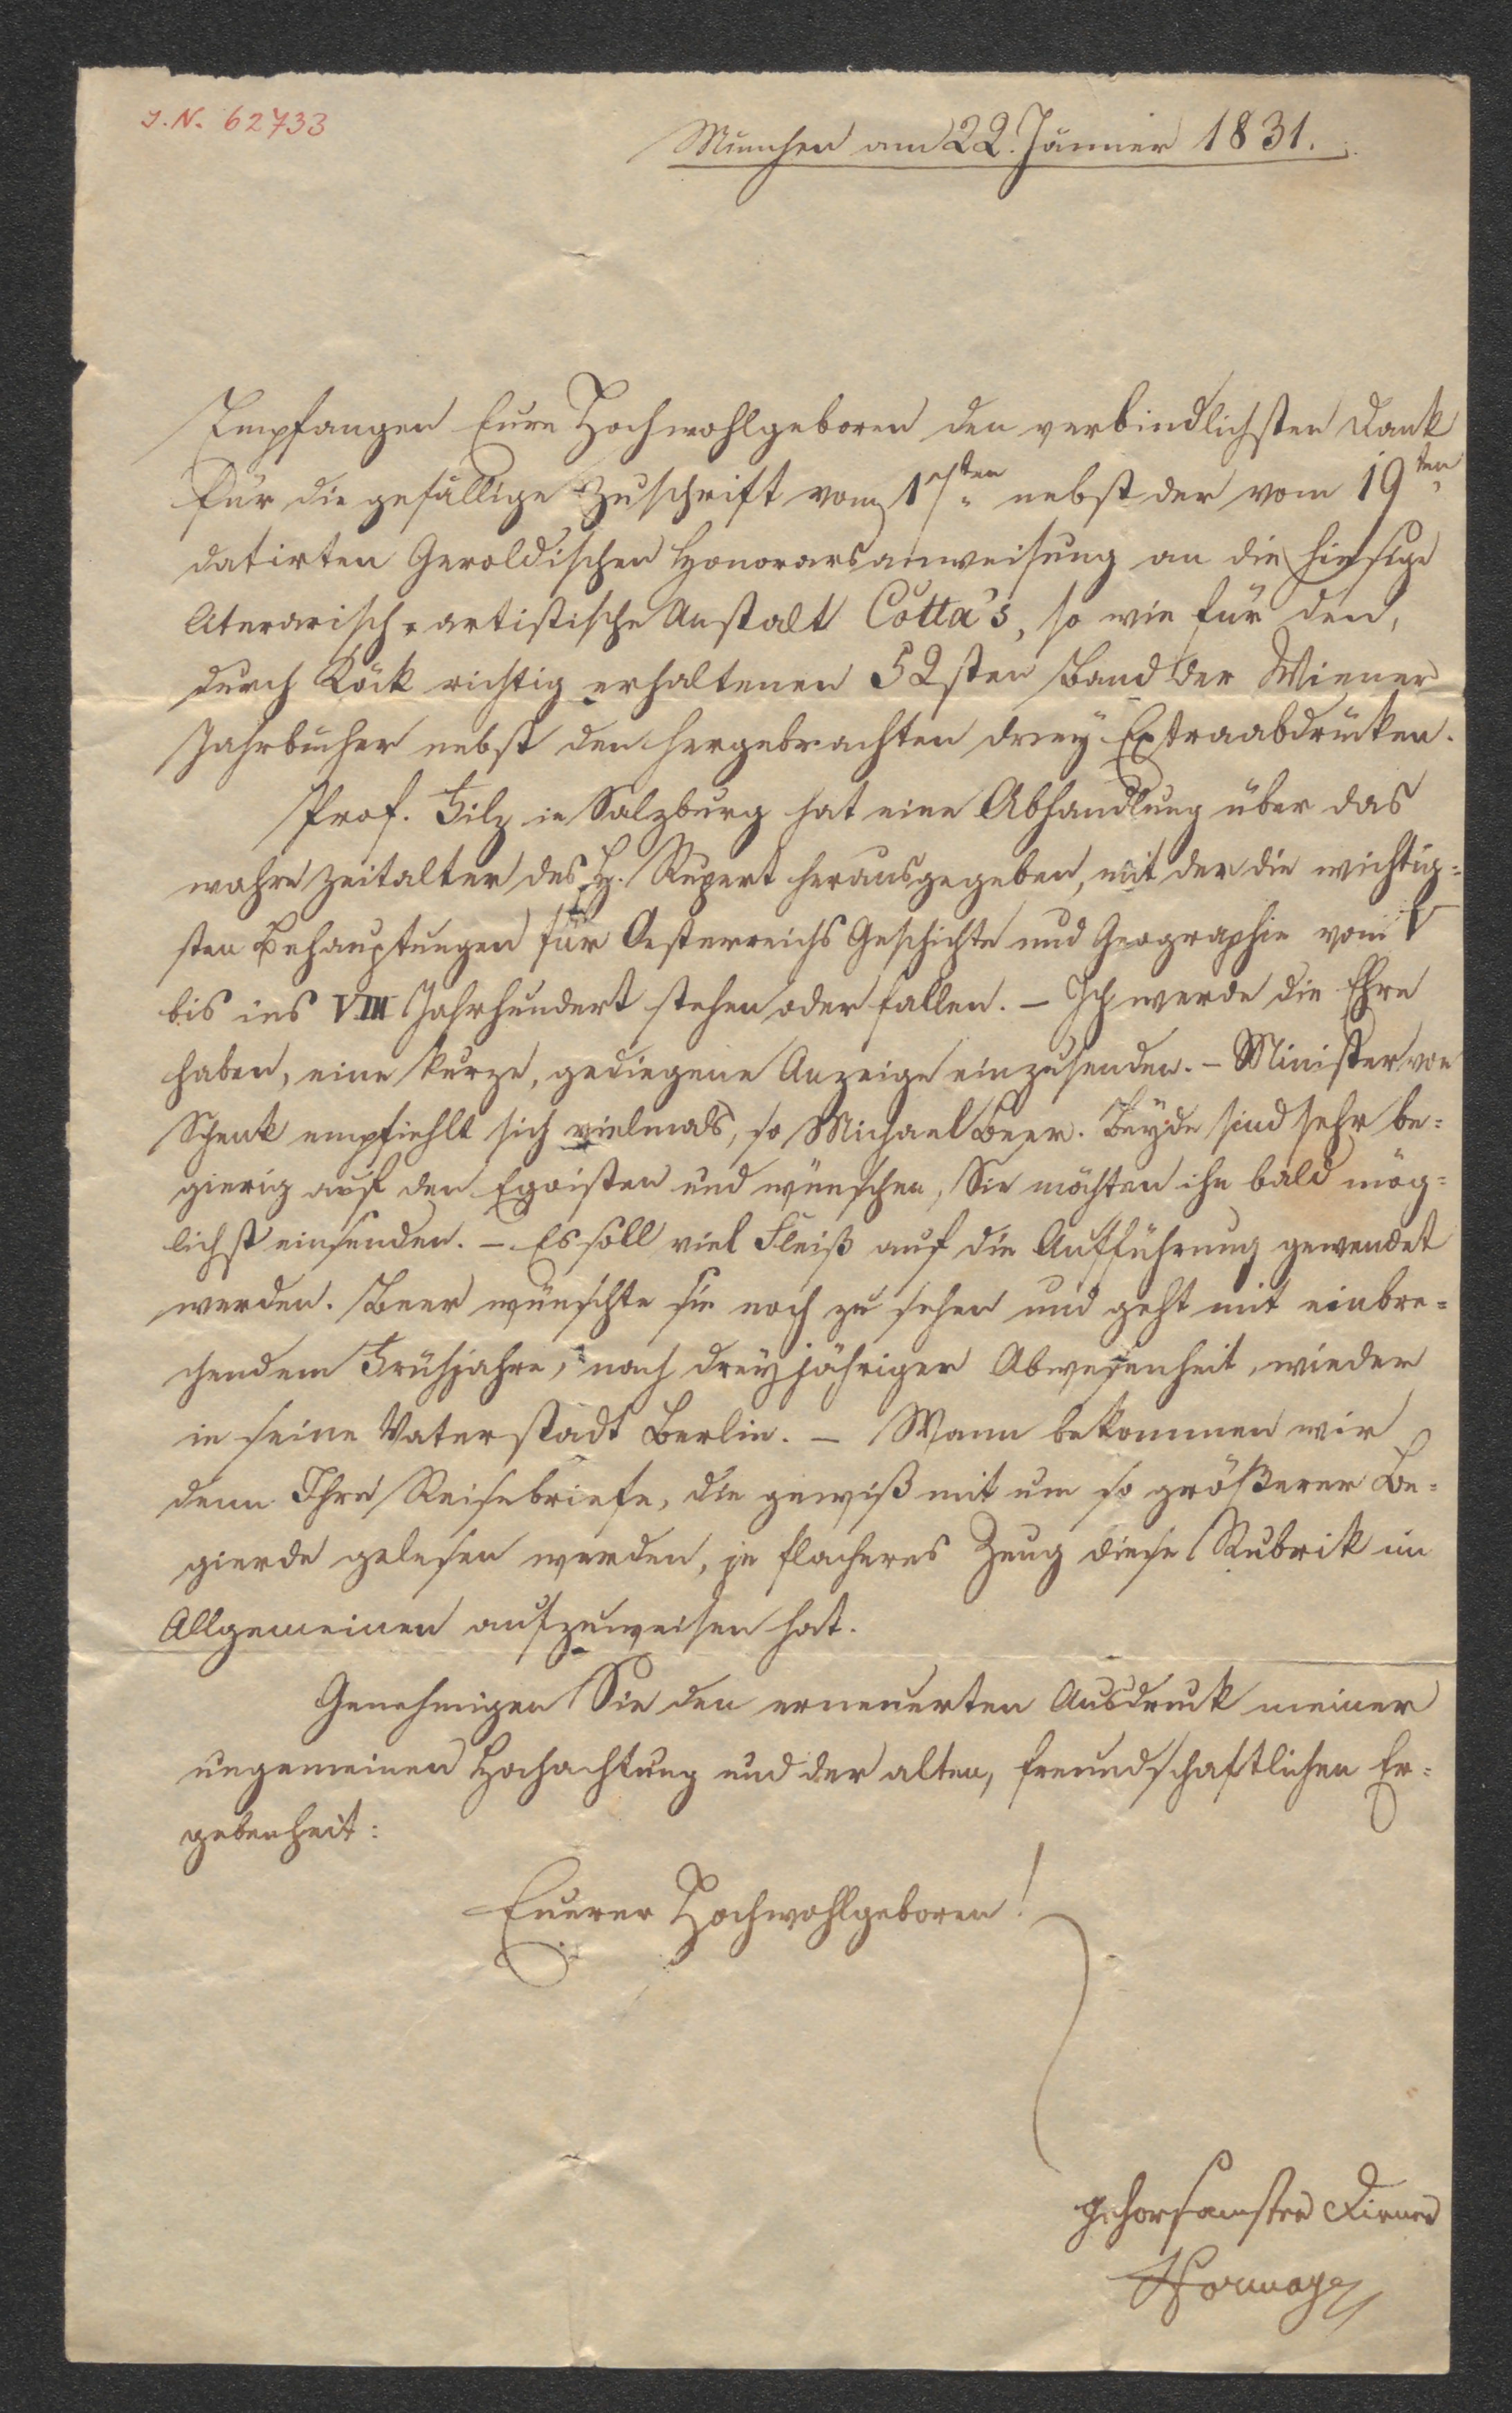 J. N. 62733
München am 22. Jänner 1831.
Empfangen Eure Hochwohlgeboren den verbindlichsten Dank
für die gefällige Zuschrift vom nebst der vom 19ten
datirten Geroldischen Honorarsanweisung an die hiesige
literarisch-artistische Anstalt Cotta's, so wie für den,
durch Köck richtig erhaltenen 52sten Band der Wiener
Jahrbücher nebst den hergebrachten drey Extraabdrücken.
Prof. Filz in Salzburg hat eine Abhandlung über das
wahre Zeitalter des H. Rupert herausgegeben, mit der die wichtig=
sten Behauptungen für Oesterreichs Geschichte und Geographie vom V
bis ins VIII Jahrhundert stehen oder fallen. – Ich werde die Ehre
haben, eine kurze, gediegene Anzeige einzusenden. – Minister von
Schenk empfiehlt sich vielmals, so Michael Beer. Beyde sind sehr be=
gierig auf den Egoisten und wünschen, Sie möchten ihn bald mög=
lichst einsenden. – Es soll viel Fleiß auf die Aufführung gewendet
werden. Beer wünschte sie noch zu sehen und geht mit einbre=
chendem Frühjahre, nach dreyjähriger Abwesenheit, wieder
in seine Vaterstadt Berlin. – Wann bekommen wir
denn Ihre Reisebriefe, die gewiß mit um so größerer Be=
gierde gelesen werden, je flacheres Zeug diese Rubrik im
Allgemeinen aufzuweisen hat.
Genehmigen Sie den erneuerten Ausdruck meiner
ungemeinen Hochachtung und der alten, freundschaftlichen Er=
gebenheit:
Euerer Hochwohlgeboren!
gehorsamster Diener
Hormayr